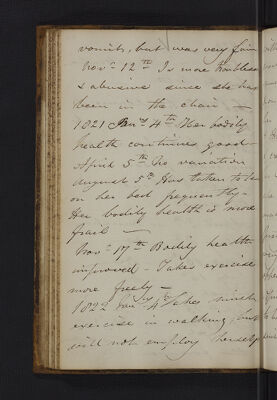 vomits, but was very fain
Novr 12th Is more troublesome
& abusive since she has
been in the chair —
1821 Jany 4th Her bodily
health continues good —
April 5th No variation
August 5th Has taken to
on her bed frequently.
Her bodily health is more
frail —
Novr 17th Bodily health
improved — Takes exercise
more freely —
1822 Jany 4th Takes much
exercise in walking, but
will not employ herself